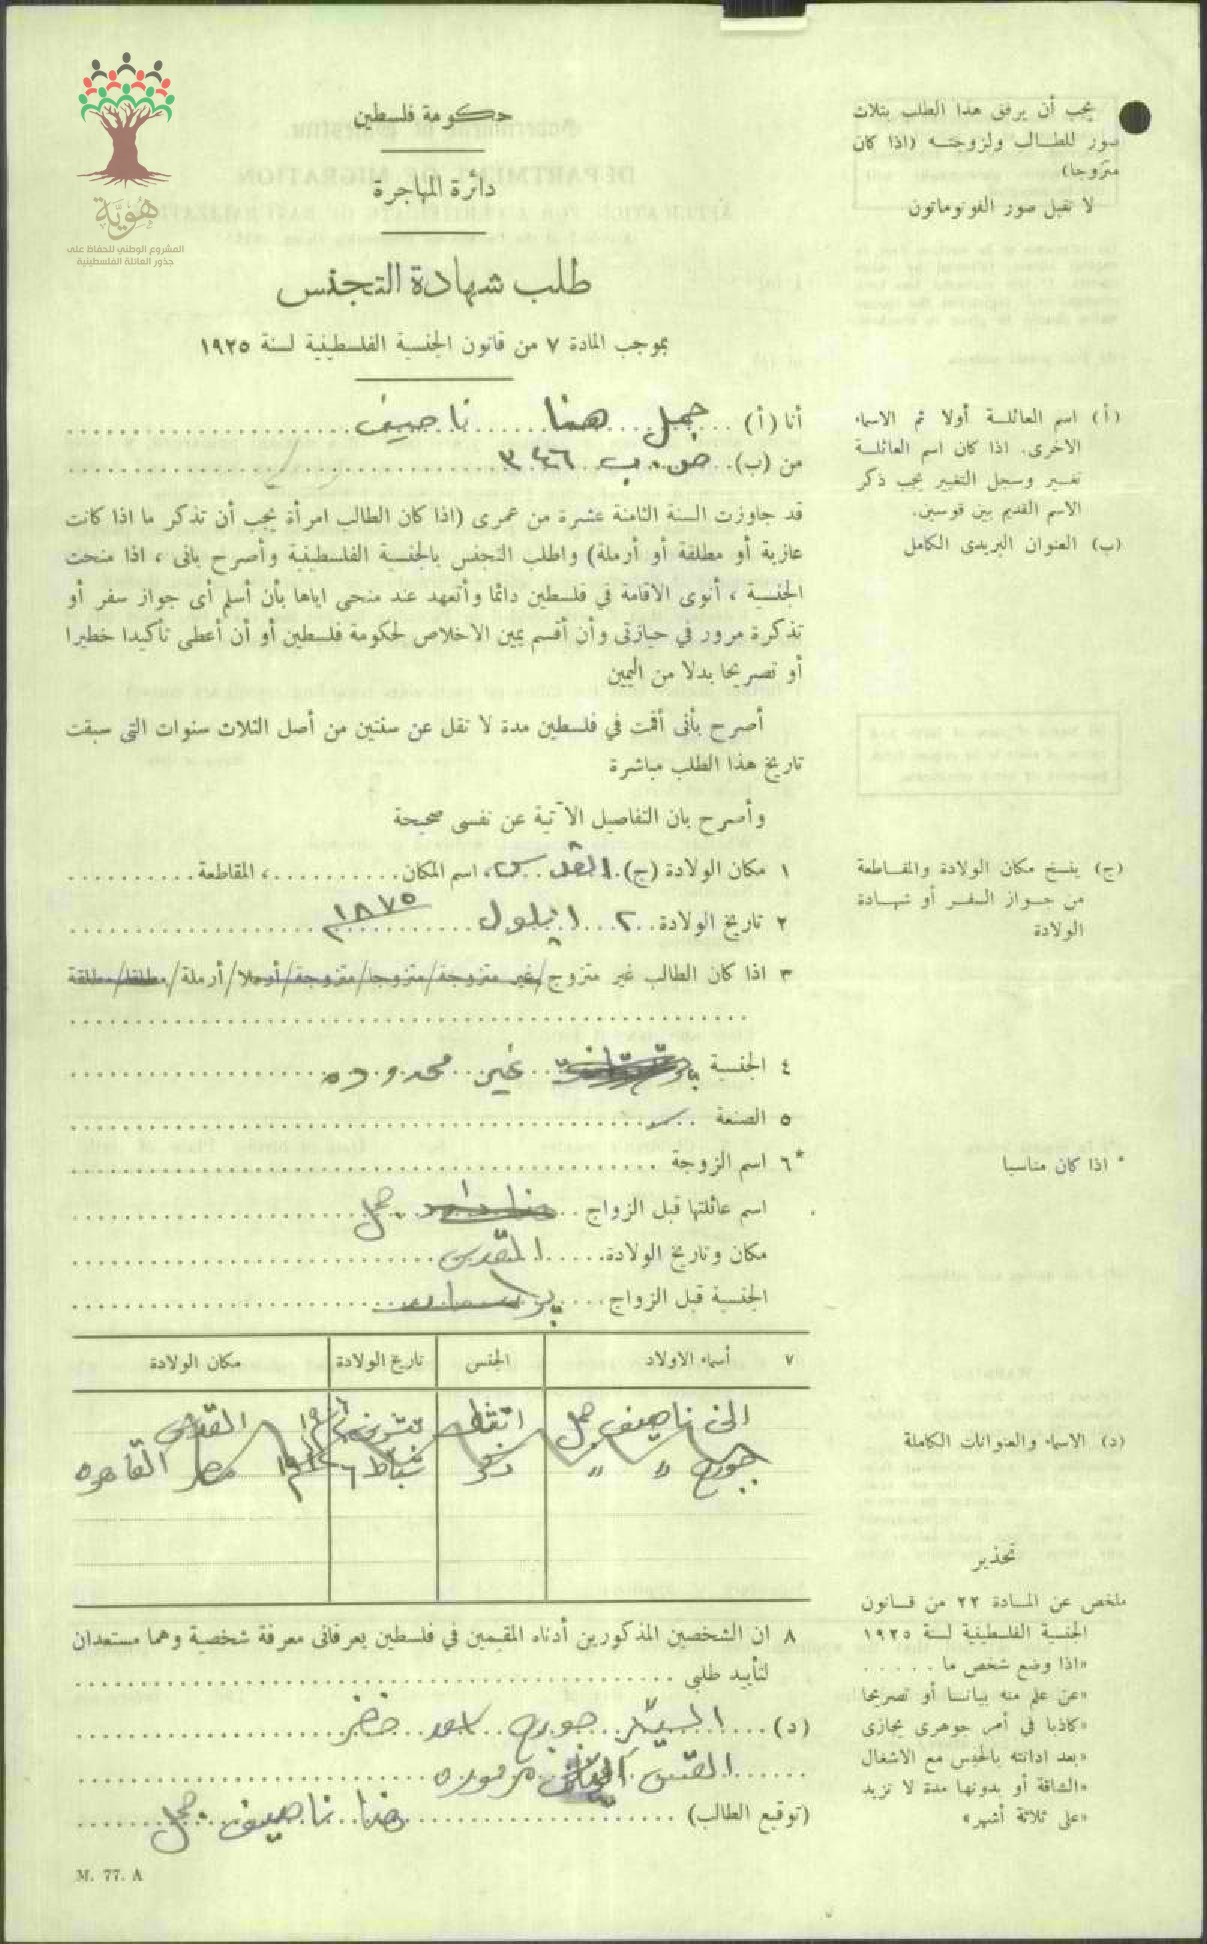 هُوِيَّة
المشروع الوطني للحفاظ على
جذور العائلة الفلسطينية
حكومة فلسطين
دائرة المهاجرة
طلب شهادة التجنس
بموجب المادة ٧ من قانون الجنسية الفلسطينية لسنة ١٩٢٥
يجب أن يرفق هذا الطلب بثلاث
صور للطالب ولزوجته (اذا كان
متزوجا)
لا تقبل صور الفوتوماتون
أنا (أ) جمل حنا ناصيف
من (ب) ص. ب ٣٤٦
(أ) اسم العائلة أولا ثم الاسماء
الاخرى. اذا كان اسم العائلة
تغير وسجل التغيير يجب ذكر
الاسم القديم بين قوسين.
(ب) العنوان البريدى الكامل
قد جاوزت السنة الثامنة عشرة من عمرى (اذا كان الطالب امرأة يجب أن تذكر ما اذا كانت
عازبة أو مطلقة أو أرملة) واطلب التجنس بالجنسية الفلسطينية وأصرح بانى ، اذا منحت
الجنسية ، أنوى الاقامة في فلسطين دائما وأتعهد عند منحى اياها بأن أسلم أى جواز سفر أو
تذكرة مرور في حيازتى وأن أقسم يمين الاخلاص لحكومة فلسطين أو أن أعطى تأكيدا خطيرا
أو تصريحا بدلا من اليمين
أصرح بأنى أقمت في فلسطين مدة لا تقل عن سنتين من أصل الثلاث سنوات التى سبقت
تاريخ هذا الطلب مباشرة
وأصرح بان التفاصيل الآتية عن نفسى صحيحة
١ مكان الولادة (ج) القدس ، اسم المكان ، المقاطعة
(ج) ينسخ مكان الولادة والمقاطعة
من جواز السفر أو شهادة
الولادة
٢ تاريخ الولادة ٢ ايلول ١٨٧٥
٣ اذا كان الطالب غير متزوج/غير متزوجة/متزوجا/متزوجة/أرملا/أرملة/مطلقا/مطلقة
٤ الجنسية غير محدوده
٥ الصنعة
*٦ اسم الزوجة
* اذا كان مناسبا
اسم عائلتها قبل الزواج جمل
مكان وتاريخ الولادة القدس
الجنسية قبل الزواج
٧ أسماء الاولاد الجنس تاريخ الولادة مكان الولادة
ناصيف جمل القدس
جورج " " ذكر شباط ٦ مصر القاهره
(د) الاسماء والعنوانات الكاملة
تحذير
ملخص عن المادة ٢٢ من قانون
الجنسية الفلسطينية لسنة ١٩٢٥
«اذا وضع شخص ما
«عن علم منه بيانا أو تصريحا
«كاذبا في أمر جوهرى يجازى
«بعد ادانته بالحبس مع الاشغال
«الشاقة أو بدونها مدة لا تزيد
«على ثلاثة أشهر»
٨ ان الشخصين المذكورين أدناه المقيمين في فلسطين يعرفانى معرفة شخصية وهما مستعدان
لتأييد طلبى
(د) جورج خضر
القس الياس مرموره
(توقيع الطالب) حنا ناصيف جمل
M. 77. A